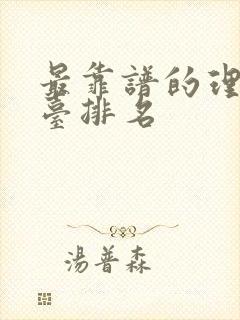 最靠譜的理
臺排名
湯普森